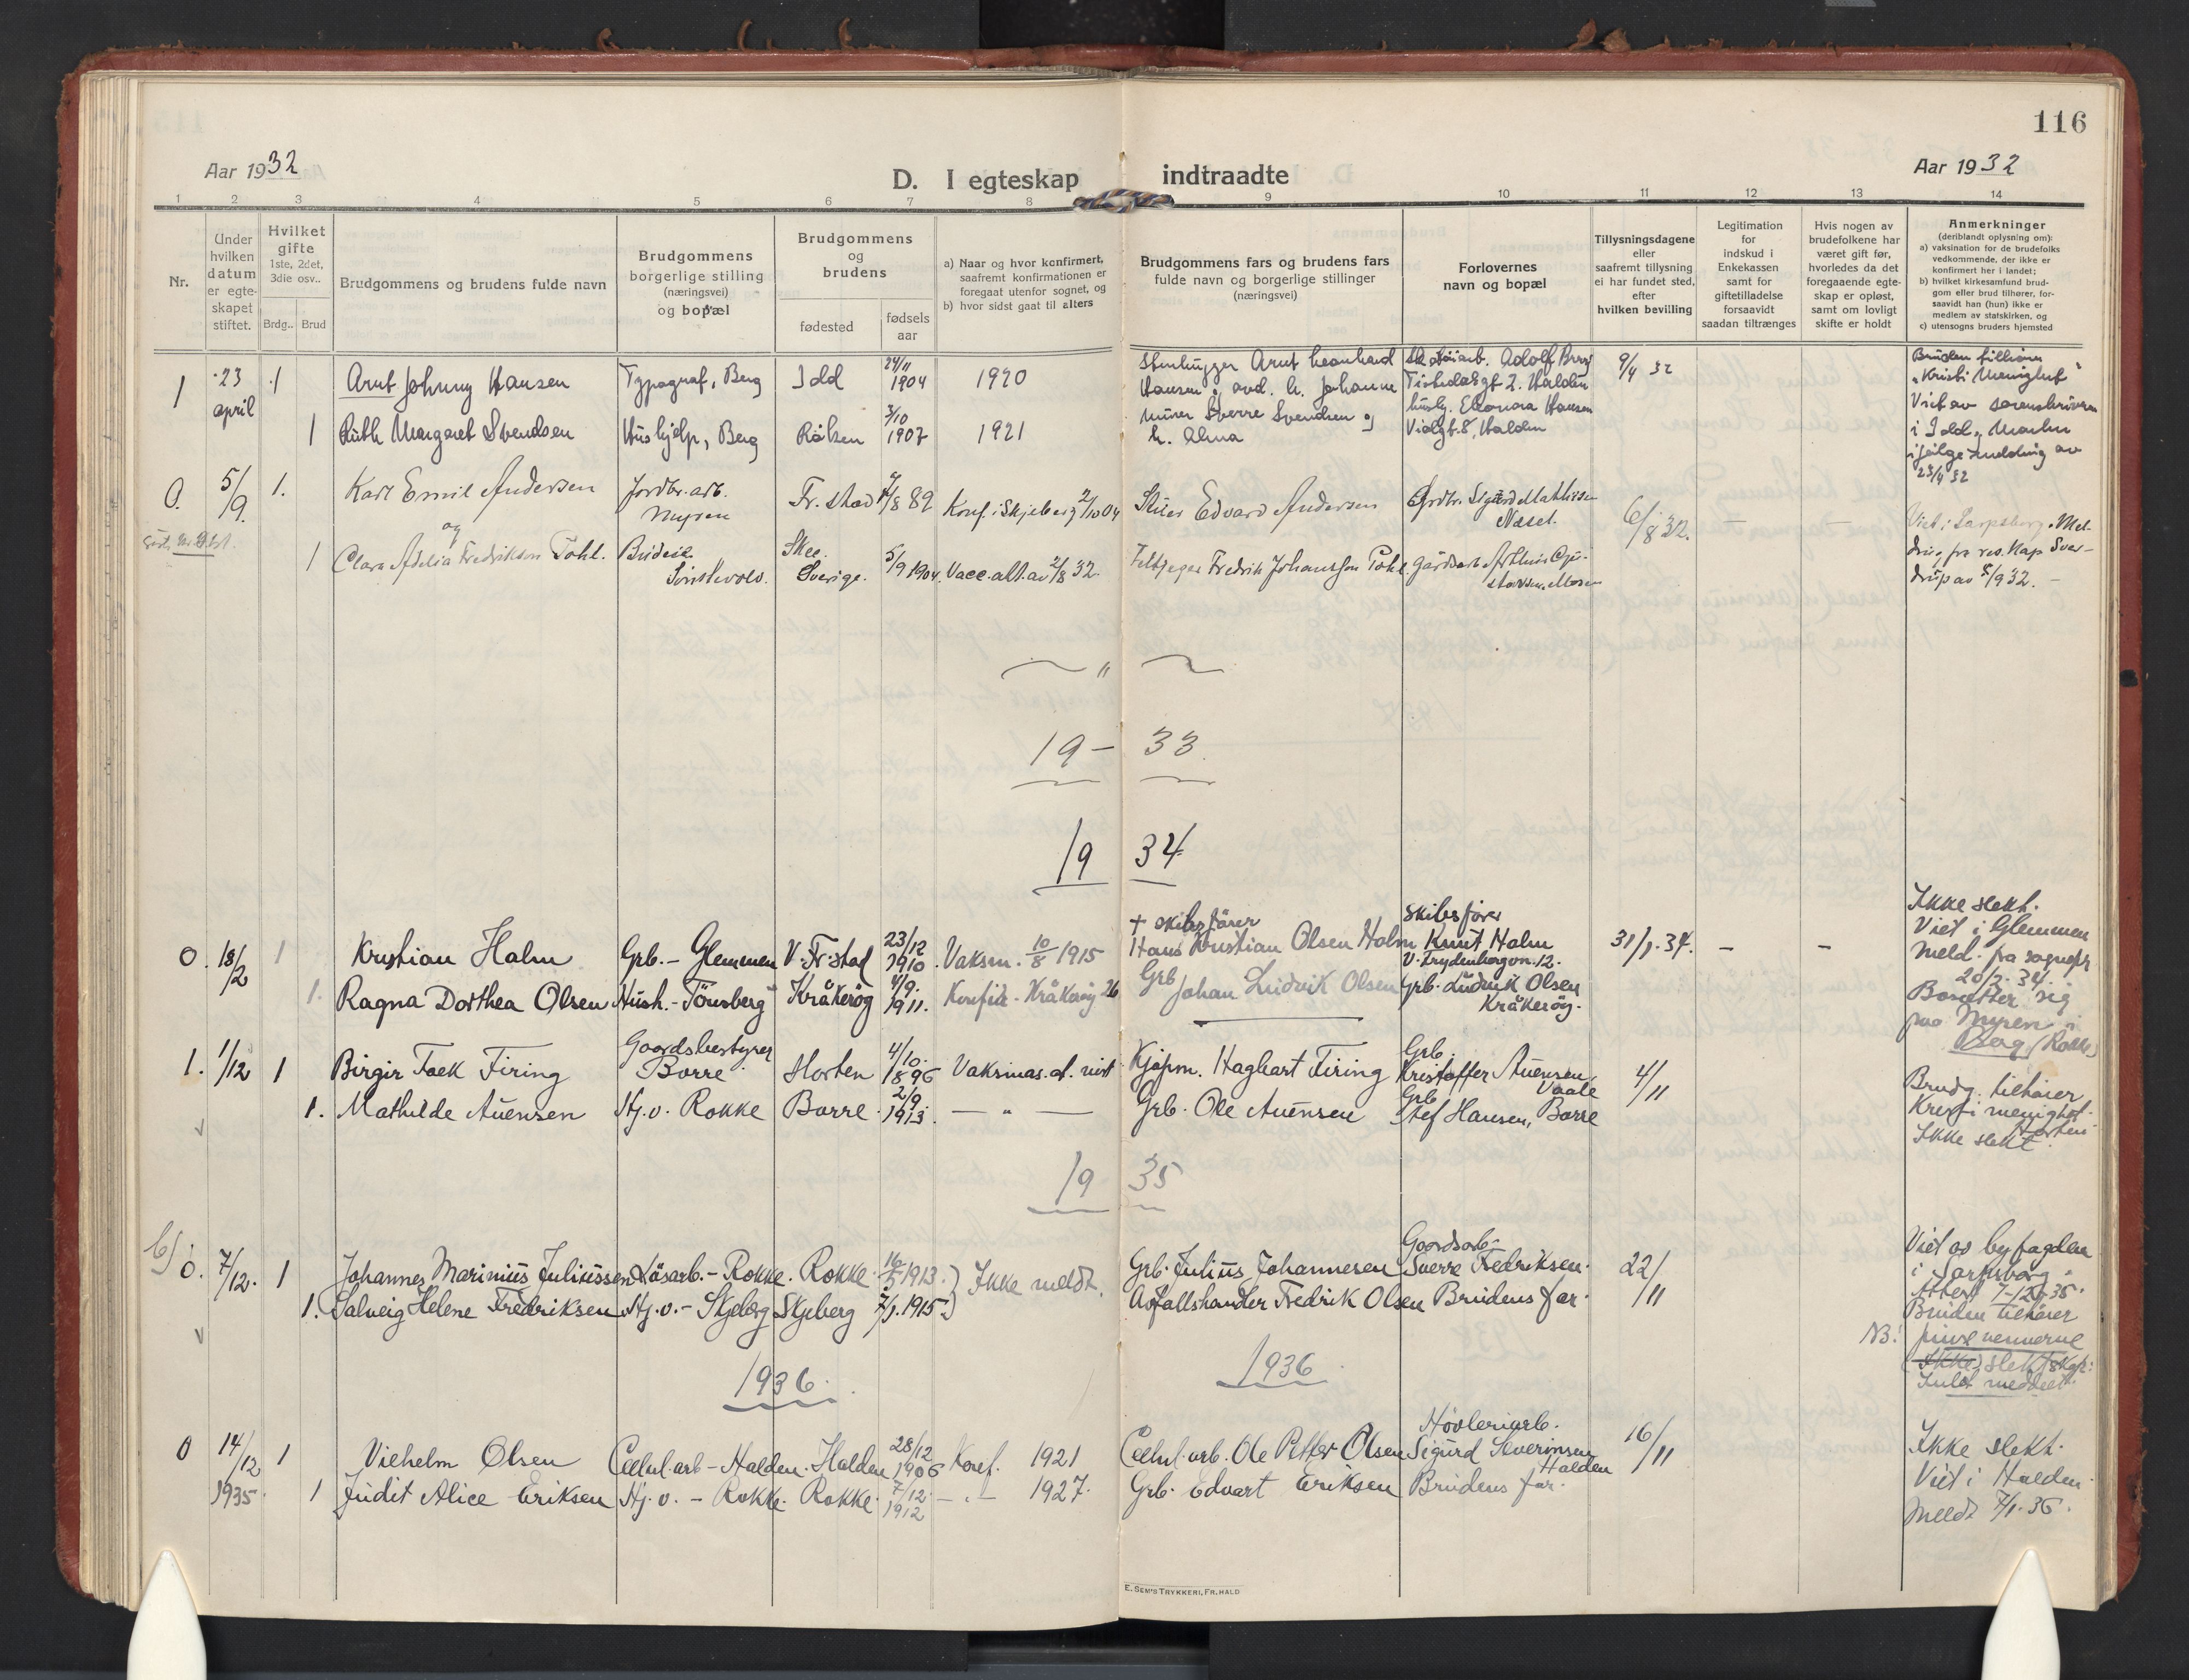 116
Aar 1932
D. I egteskap indtraadte
Aar 1932
1 2 3 4 5 6 7 8 9 10 11 12 13 14
Nr.
Under
hvilken
datum
er egte-
skapet
stiftet.
Hvilket
gifte
1ste, 2det,
3die osv..
Brdg.. Brud
Brudgommens og brudens fulde navn
Brudgommens
borgerlige stilling
(næringsvei)
og bopæl
Brudgommens
og
brudens
fødested
fødsels
aar
a) Naar og hvor konfirmert,
saafremt konfirmationen er
foregaat utenfor sognet, og
b) hvor sidst gaat til alters
Brudgommens fars og brudens fars
fulde navn og borgerlige stillinger
(næringsvei)
Forlovernes
navn og bopæl
Tillysningsdagene
eller
saafremt tillysning
ei har fundet sted,
efter
hvilken bevilling
Legitimation
for
indskud i
Enkekassen
samt for
giftetilladelse
forsaavidt
saadan tiltrænges
Hvis nogen av
brudefolkene har
været gift før,
hvorledes da det
foregaaende egte-
skap er opløst,
samt om lovligt
skifte er holdt
Anmerkninger
(deriblandt oplysning om):
a) vaksination for de brudefolks
vedkommende, der ikke er
konfirmert her i landet;
b) hvilket kirkesamfund brud-
gom eller brud tilhører, for-
saavidt han (hun) ikke er
medlem av statskirken, og
c) utensogns bruders hjemsted
1 23 april 1 Arnt Johnny Hansen Typograf, Berg Idd 24/11 1904 1920
Stenhugger Arnt Leonhard
Hansen og avd. h. Johanne
Adolf Berg
Tistedalsgt 2. Halden
9/4 32
Bruden tilhører
"Kristi Menighet"
Viet av sorenskriveren
i Idd & Marker
ifølge melding av
23/4 32
1 Ruth Margaret Svendsen Hushjelp, Berg Råken 3/10 1907 1921
murer Sverre Svendsen og
h. Alma
husby. Eleonora Hansen
Violgt. 8, Halden
0. 5/9. 1. Karl Emil Andersen
og
Jordbr. arb.
Myren
Fr. stad /8 89 Konf. i Skjeberg 2/10 04
Edvard Andersen
Grdbr. Sigurd Mathisen
Næset.
6/8 32. — —
Viet i Sarpsborg. Mel-
ding fra res. Kap Sver-
drup av 5/9 32. –
1 Clara Adelia Fredrikson Pohl. Budeie
Skee.
Sverige. 5/9 1904. Vacc. att. av 2/8 32.
Feltjeger Fredrik Johansson Pohl. Gårdsarb. Arthur Gu-
stavsen. Moren
19 – 33.
19 34
0. 18/2 1 Kristian Holm Grb. – Glemmen V. Fr.stad 23/12 1910. Vaksin. 10/8 1915
+ skibsfører
Hans Kristian Olsen Holm
skibsfører
Knut Holm
V. Trydenborgvn. 12.
31/1. 34. – –
Ikke slekt.
Viet i Glemmen
Meld. fra sognepr
20/2. 34.
Bosetter sig
paa Myren i
Berg (Rokke)
1. Ragna Dorthea Olsen Hush. – Tönsberg Kråkerøy 4/9. 1911. Konfir. – Kråkerøy 26
Grb Johan Ludvik Olsen
Grb. Ludvik Olsen
Kråkerøy.
1. 1/12 1 Birgir Foek Firing Goordsbestyrer
Borre Horten 4/10. 1896 Vaksinas. at. vist
Kjøpm. Hagbart Firing
Grb.
Kristoffer Auensen
Vaale
4/11
Brudg. tilhører
Kresti menighet.
Horten
Ikke slekt.
1. Mathilde Auensen Hj. v. Rokke Borre. 2/9. 1913. — " —
Grb. Ole Auensen
Grb
Hansen, Borre
19 35
0. 7/12. 1 Johannes Marinius Juliussen Løsarb. – Rokke. Rokke. 16/5 1913.) Ikke meldt.
Grb. Julius Johannesen
Goordsarb.
Sverre Fredriksen.
22/11
Viet av byfogden
i Sarpsborg.
Attest 7–12–35.
Bruden tilhører
pinsevennerne
(Ikke) slektskap:
Intet meddelt.
NB!
1. Salveig Helene Fredriksen Hj. v. – Skjeberg Skjeberg 7/1. 1915.)
Avfallshandler Fredrik Olsen Brudens far.
1936. 1936
0 14/12 1935. 1 Vilhelm Olsen Cellul. arb – Halden. Halden 28/12 1906 Konf. 1921
Cellul. arb. Ole Petter Olsen
Høvleriarb.
Sigurd Severinsen
Halden
16/11
Ikke slekt.
Viet i Halden.
Meldt 7/1. 36.
1 Judit Alice Eriksen Hj. v. – Rokke. Rokke. 7/12. 1912 – . – 1927.
Grb. Edvart Eriksen Brudens far.
E. SEM'S TRYKKERI, FR.HALD